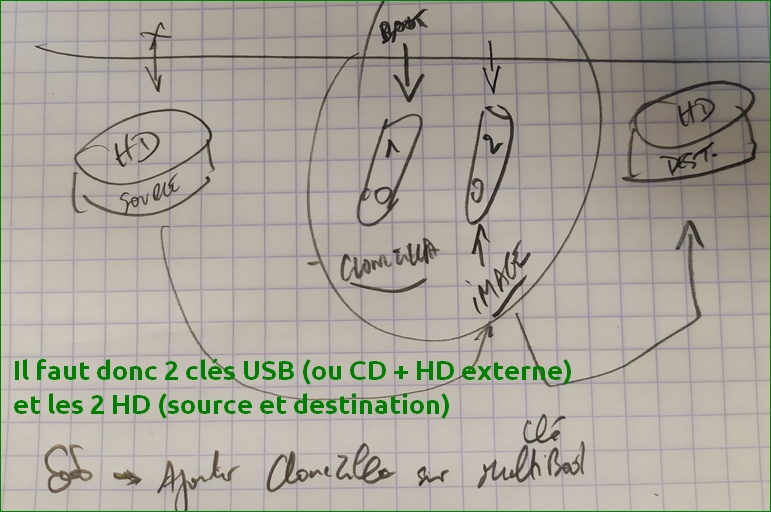 BOOT
1
2
HD
SOURCE
HD
DEST.
CLONEZILLA
IMAGE
Il faut donc 2 clés USB (ou CD + HD externe)
et les 2 HD (source et destination)
clé
→ Ajouter CloneZilla sur MultiBoot